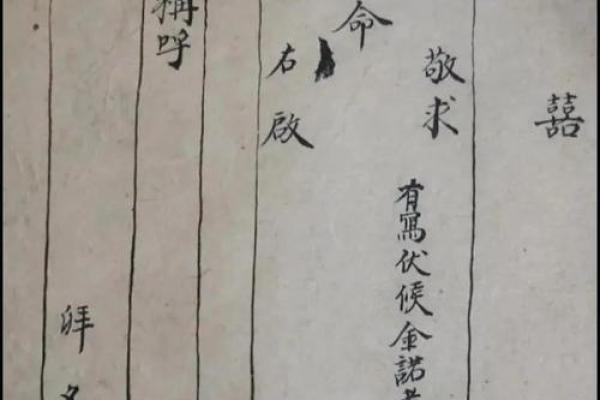 囍
敬求
有寫伏候金諾
命
右啟
稱呼
拜